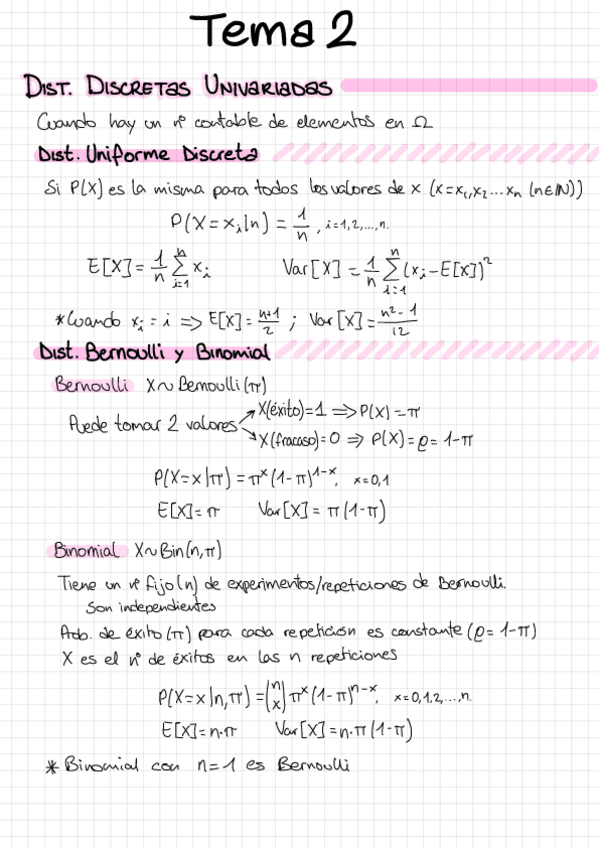 Tema 2
DIST. DISCRETAS UNIVARIADAS
Cuando hay un nº contable de elementos en Ω
Dist. Uniforme Discreta
Si P(X) es la misma para todos los valores de x (x=x₁,x₂...xₙ (n∈ℕ))
P(X=xᵢ|n) = 1/n, i=1,2,...,n.
E[X] = 1/n Σⁿᵢ₌₁ xᵢ Var[X] = 1/n Σⁿᵢ₌₁ (xᵢ-E[x])²
*Cuando xᵢ = i => E[X] = n+1/2 ; Var[X] = n²-1/12
Dist. Bernoulli y Binomial
Bernoulli X~Bernoulli(π)
Puede tomar 2 valores
X(éxito)=1 => P(X)=π
X(fracaso)=0 => P(X)=ϱ=1-π
P(X=x|π) = πˣ(1-π)¹⁻ˣ, x=0,1
E[X]=π Var[X] = π(1-π)
Binomial X~Bin(n,π)
Tiene un nº fijo (n) de experimentos/repeticiones de Bernoulli.
Son independientes
Prob. de éxito (π) para cada repetición es constante (ϱ=1-π)
X es el nº de éxitos en las n repeticiones
P(X=x|n,π) = (n x) πˣ(1-π)ⁿ⁻ˣ, x=0,1,2,...,n.
E[X]=n·π Var[X]=n·π(1-π)
* Binomial con n=1 es Bernoulli